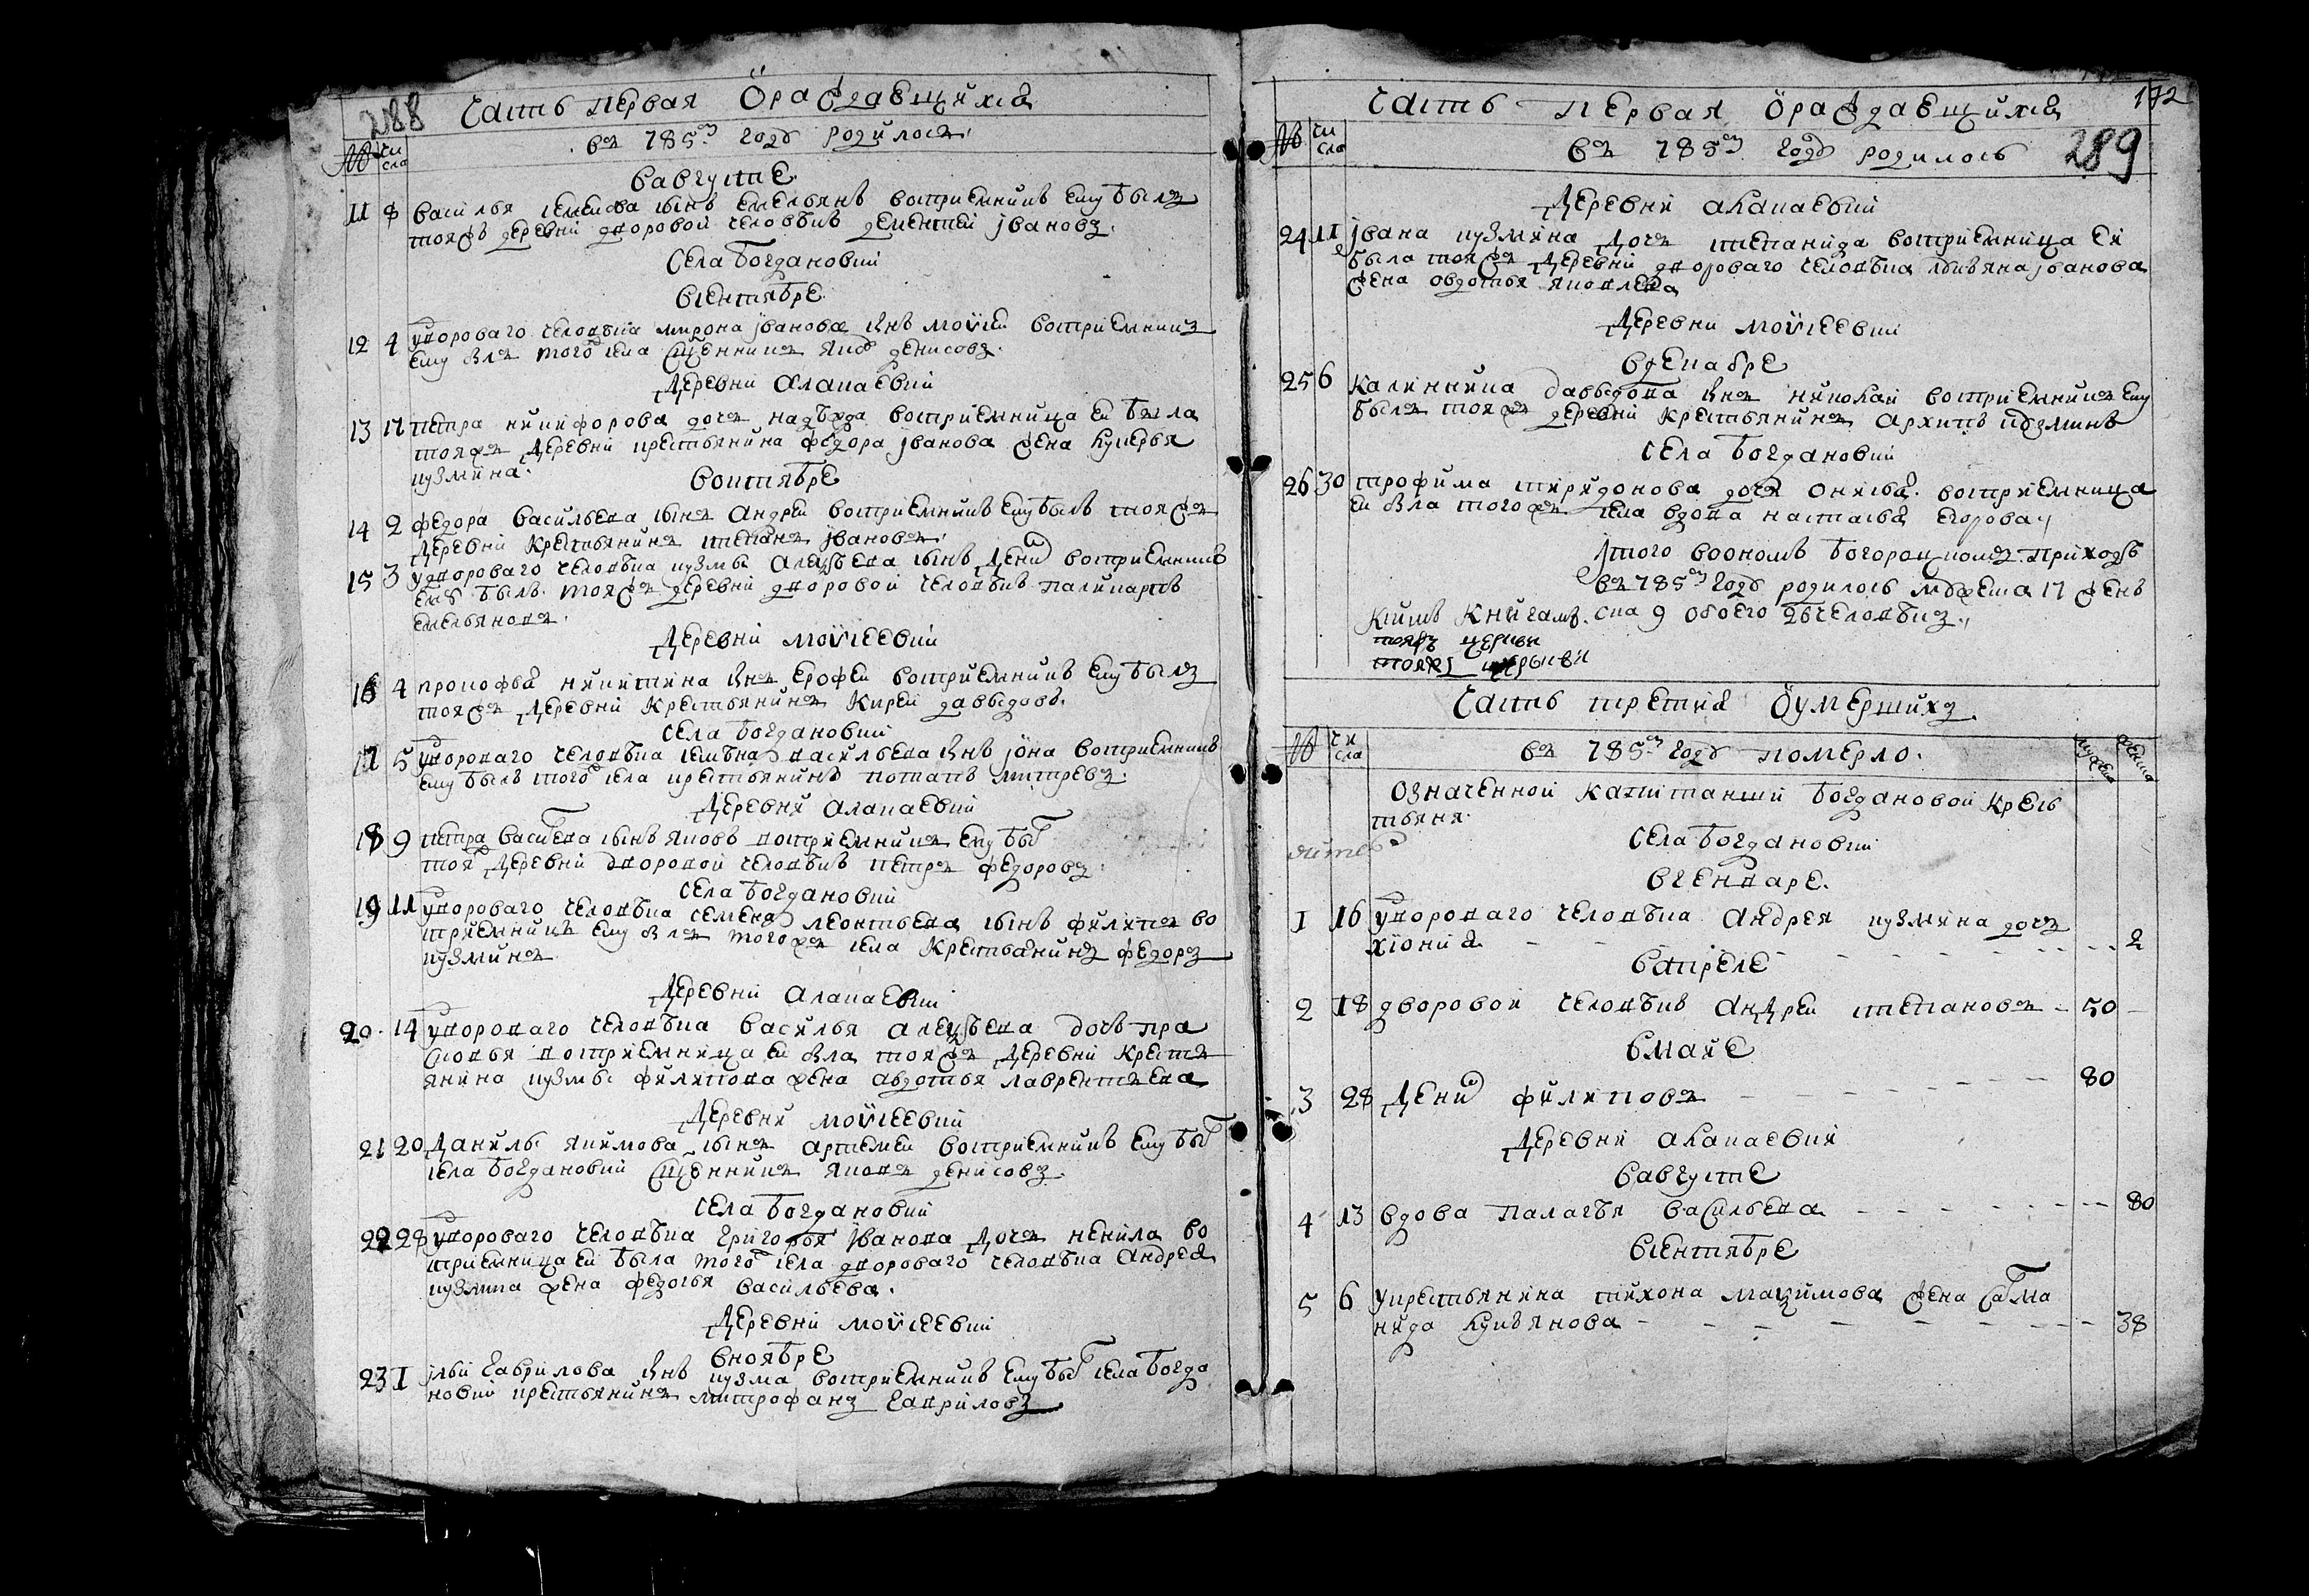 288 Часть первая О раждающихся
№ числа
въ 785м году родилось
вавгусте
11 8 василья семенова сынъ емельянъ восприемникъ ему былъ
тояжъ деревни дворовой человѣкъ дементей ивановъ.
села богдановки
всентябре
12 4 удвороваго человѣка мирона иванова снъ моѵсей восприемникъ
ему былъ того села сщенникъ яковъ денисовъ.
деревни алакаевки
13 17 петра никифорова дочь надѣжда восприемница ей была
тояжъ деревни крестьянина федора иванова жена лукерья
кузмина.
воктябре
14 2 федора васильева сынъ андрей восприемникъ ему былъ тояжъ
деревни крестьянинъ степанъ ивановъ.
15 3 удвороваго человѣка кузмы алеѯѣева сынъ денис восприемникъ
ему былъ тояжъ деревни дворовой человѣкъ паликарпъ
емельяновъ.
деревни моѵсеевки
16 4 прокофья никитина снъ ерофей восприемникъ ему былъ
тояжъ деревни крестьянинъ кирей давыдовъ.
села богдановки
17 5 удвороваго человѣка семѣна васильева снъ иона восприемникъ
ему былъ того села крестьянинъ потапъ митревъ.
деревни алакаевки
18 9 петра васильева сынъ яковъ восприемникъ ему был
тояж деревни дворовой человѣкъ петръ федоровъ
села богдановки
19 11 удвороваго человѣка семена леонтьева сынъ филипъ во
сприемникъ ему былъ тогожъ села крестьянинъ федоръ
кузминъ
деревни алакаевки
20. 14 удвороваго человѣка василья алеѯѣева дочь пра
сковья восприемница ей была тояжъ деревни кресть
янина кузмы филипова жена авдотья лаврентьева
деревни моѵсеевки
21 20 данилы якимова сынъ артемей восприемникъ ему был
села богдановки сщенникъ яковъ денисовъ.
села богдановки
22 28 удвороваго человѣка григорья иванова дочь ненила во
сприемница ей была того села двороваго человѣка андрея
кузмина жена федосья васильева.
деревни моѵсеевки
вноябре
23 1 ильи гаврилова снъ кузма восприемникъ ему был села богда
новки крестьянинъ митрофанъ гавриловъ
172
Часть первая О раждающихся
№ числа
въ 785м году родилось 289
деревни алакаевки
24 11 ивана кузмина дочь степанида восприемница ей
была тояжъ деревни двороваго человѣка иванова
жена овдотья яковлева
деревни моѵсеевки
вдекабре
25 6 калинника давыдова снъ николай восприемникъ ему
былъ тояжъ деревни крестьянинъ архипъ кузминъ
села богдановки
26 30 трофима спиридонова дочь онисья. восприемница
ей была тогожъ села вдова настасья егорова
итого во ономъ богородцкомъ приходѣ
въ 785м году родилось мужеска 17 жень
ска 9 обоего 26 человѣкъ.
книгамъ
тояжъ церкви
Часть третия О умершихъ
№ числа
въ 785м году померло.
мужеска женска
означенной капитанши богдановой кресь
тьяня.
села богдановки
вгенваре.
1 16 удвороваго человѣка андрея кузмина дочь
хиония - - 2
вапреле
2 18 дворовой человѣкъ андрей степановъ - 50 -
вмаие
3 28 денис филиповъ - - 80
деревни алакаевки
вавгусте
4 13 вдова палагѣя васильева - - 80
всентябре
5 6 укрестьянина тихона маѯимова жена салма
нида лукъянова - - 38